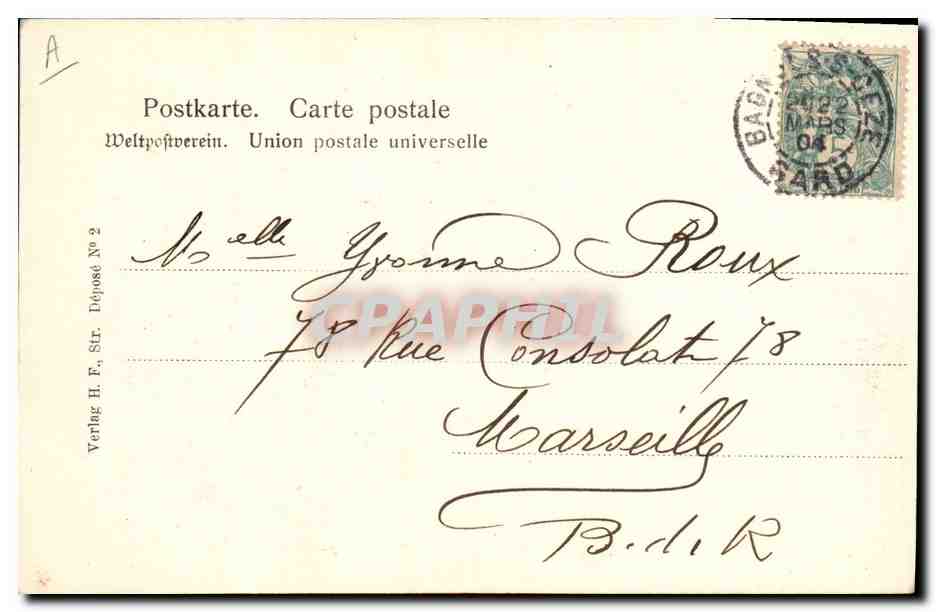 A
Postkarte. Carte postale
Weltpostverein. Union postale universelle
BAGNOLS-S-CEZE
22
MARS
04
GARD
Verlag H. F., Str. Déposé No 2
Melle Yvonne Roux
CPAPHIL
78 Rue Consolat 78
Marseille
B. d. R